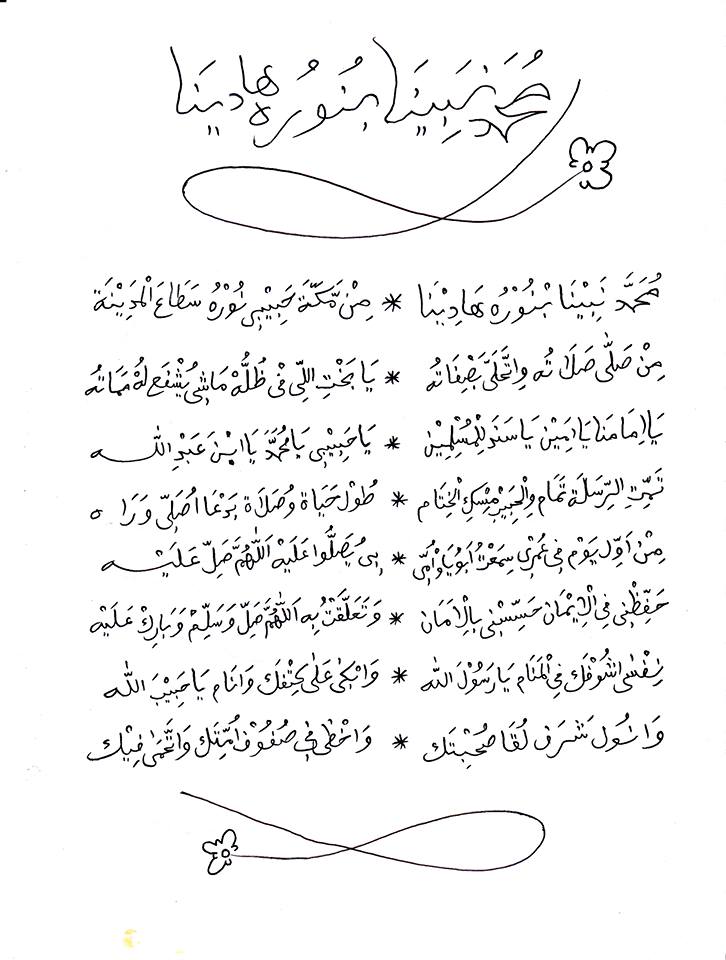 مُحَمَّد نَبِينَا بِنُورُه هَادِينَا
مُحَمَّد نَبِيْنَا بْنُوْرُه هَادِيْنَا * مِنْ مَّكَّةَ حَبِيْبِي نُوْرُهْ سَطَاعَ الْمَدِيْنَة
مِنْ صَلَّى صَلَاتُه وِاتَّحَلَّى بَصِفَاتُه * يَا بَخْتِ اللِّي فْي ظُلُّهْ مَاشِي يُشْفَع لَهُ مَمَاتُه
يَا اِمَامَنَا يَا اَمِيْن يَا سَنَدَ لِلْمُسْلِمِيْن * يَا حَبِيْبِي يَا مُحَمَّدَ يَا ابْنَ عَبْدِ الله
تَمَّتِ الرِّسَلَة تَمَام وِالْحَبِيْب مِسْكِ الْخِتَام * طُوْل حَيَاة وُصَلَاة بَدْعَا اُصَلِّي وَرَاه
مِنْ اَوِّل يَوْم فِي عُمْرِي سِمَعْت اَبُوْيَا وْاُمِّي * بِي يُصَلُّوا عَلَيْهِ اَللّٰهُمَّ صَلِّ عَلَيْه
حَفِّظْنِي فِي الْاِيْمَان حَسِّسْنِي بِالْاَمَان * وَتَعَلَّقْتُ بِه اَللّٰهُمَّ صَلِّ وَسَلِّمْ وَبَارِكْ عَلَيْه
نِفْسَى اشُوْفَك فِي الْمَنَام يَا رَسُوْلَ الله * وَاتْكَى عَلَى كِتْفَك وَانَام يَا حَبِيْبَ الله
وَانُول شَرَف لُقَا صُحْبِتَك * وَاحْظَى فِي صُفُوْف اُمِّتَك وَاتَّحَمَى فِيْك